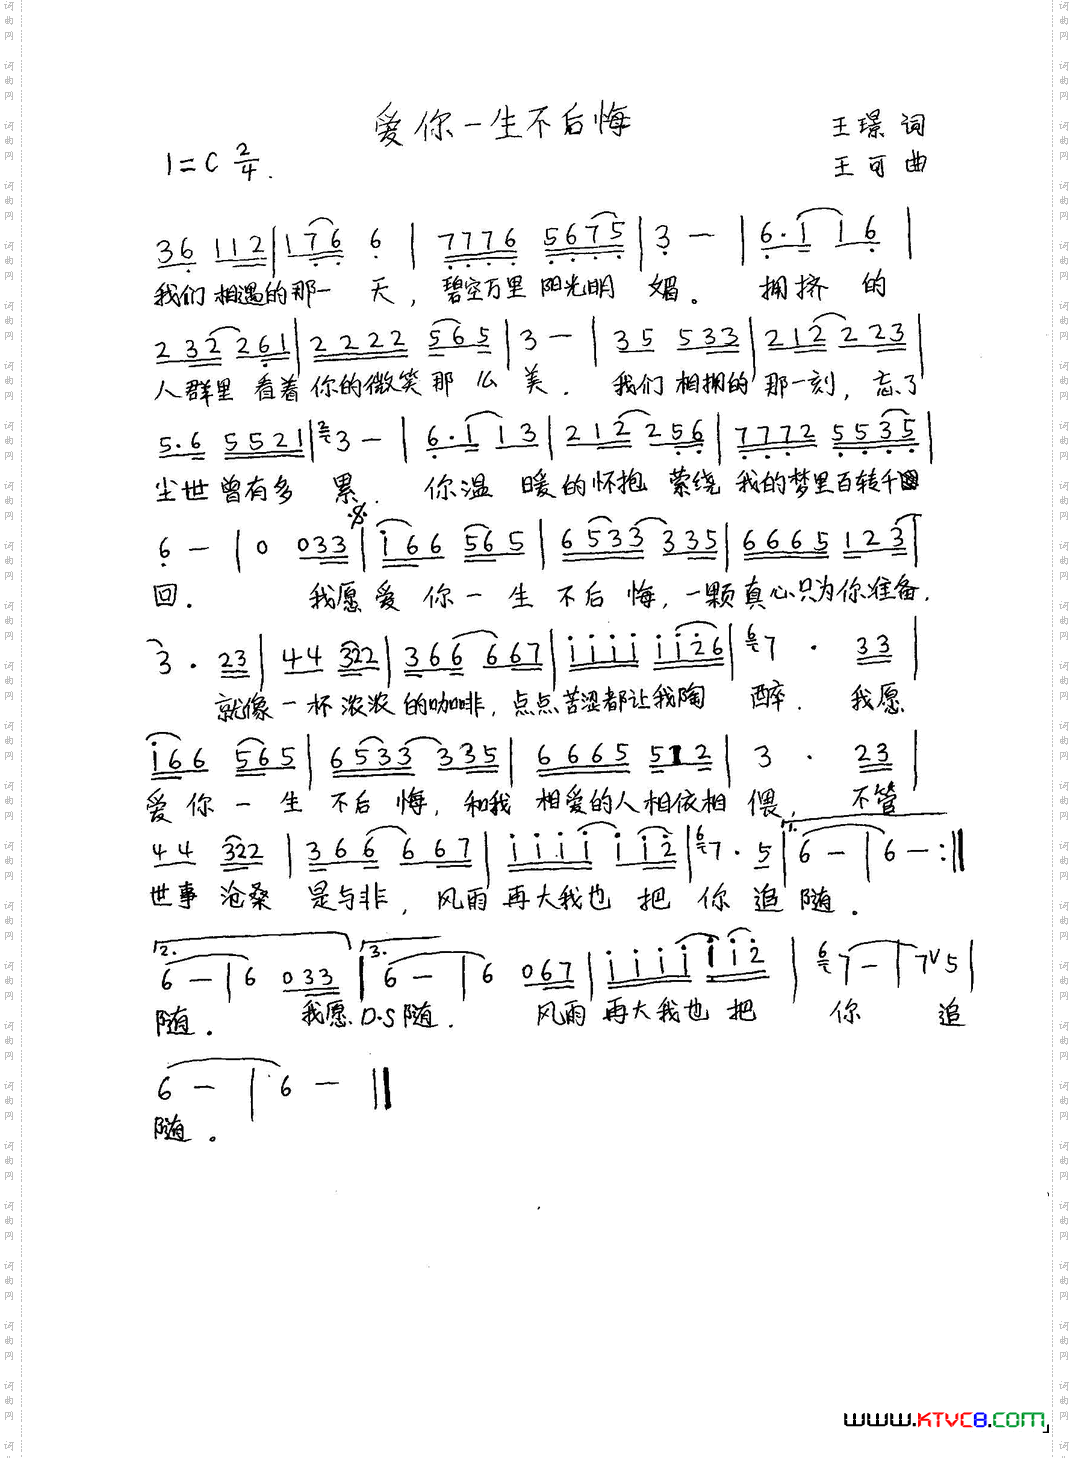 爱你一生不后悔
王璟 词
1=C 2/4.
王可 曲
36 112 | 176 6 | 7776 5675 | 3 — | 6·1 16 |
我们 相遇的那一 天，碧空万里 阳光明 媚。 拥挤 的
232 261 | 2222 565 | 3 — | 35 533 | 212 223 |
人群里 看着 你的微笑 那 么 美. 我们 相拥的 那一刻，忘了
5·6 5521 | 2 3 — | 6·1 13 | 212 256 | 7772 5535 |
尘世 曾有多 累. 你温 暖的怀抱 萦绕 我的梦里百转千
6 — | 0 033 | i66 565 | 6533 335 | 6665 123 |
回. 我愿 爱 你 一 生 不 后 悔，一颗真心只为你准备.
3· 23 | 44 322 | 366 667 | iiii ii26 | 6 7 · 33 |
就像 一 杯 浓浓 的咖啡，点点苦涩都让我陶 醉. 我愿
i66 565 | 6533 335 | 6665 512 | 3 · 23 |
爱 你 一 生 不后 悔，和我 相爱的人相依相 偎，不管
44 322 | 366 667 | iiii iii2 | 6 7· 5 | 1. 6 — | 6 — :||
世事 沧桑 是与非，风雨 再大我也 把 你 追 随.
2. 6 — | 6 033 | 3. 6 — | 6 067 | iiii iii2 | 6 7 — | 7 V 5 |
随. 我愿 D.S 随. 风雨 再大我也 把 你 追
6 — | 6 — ||
随。
词曲网
www.KTVC8.com